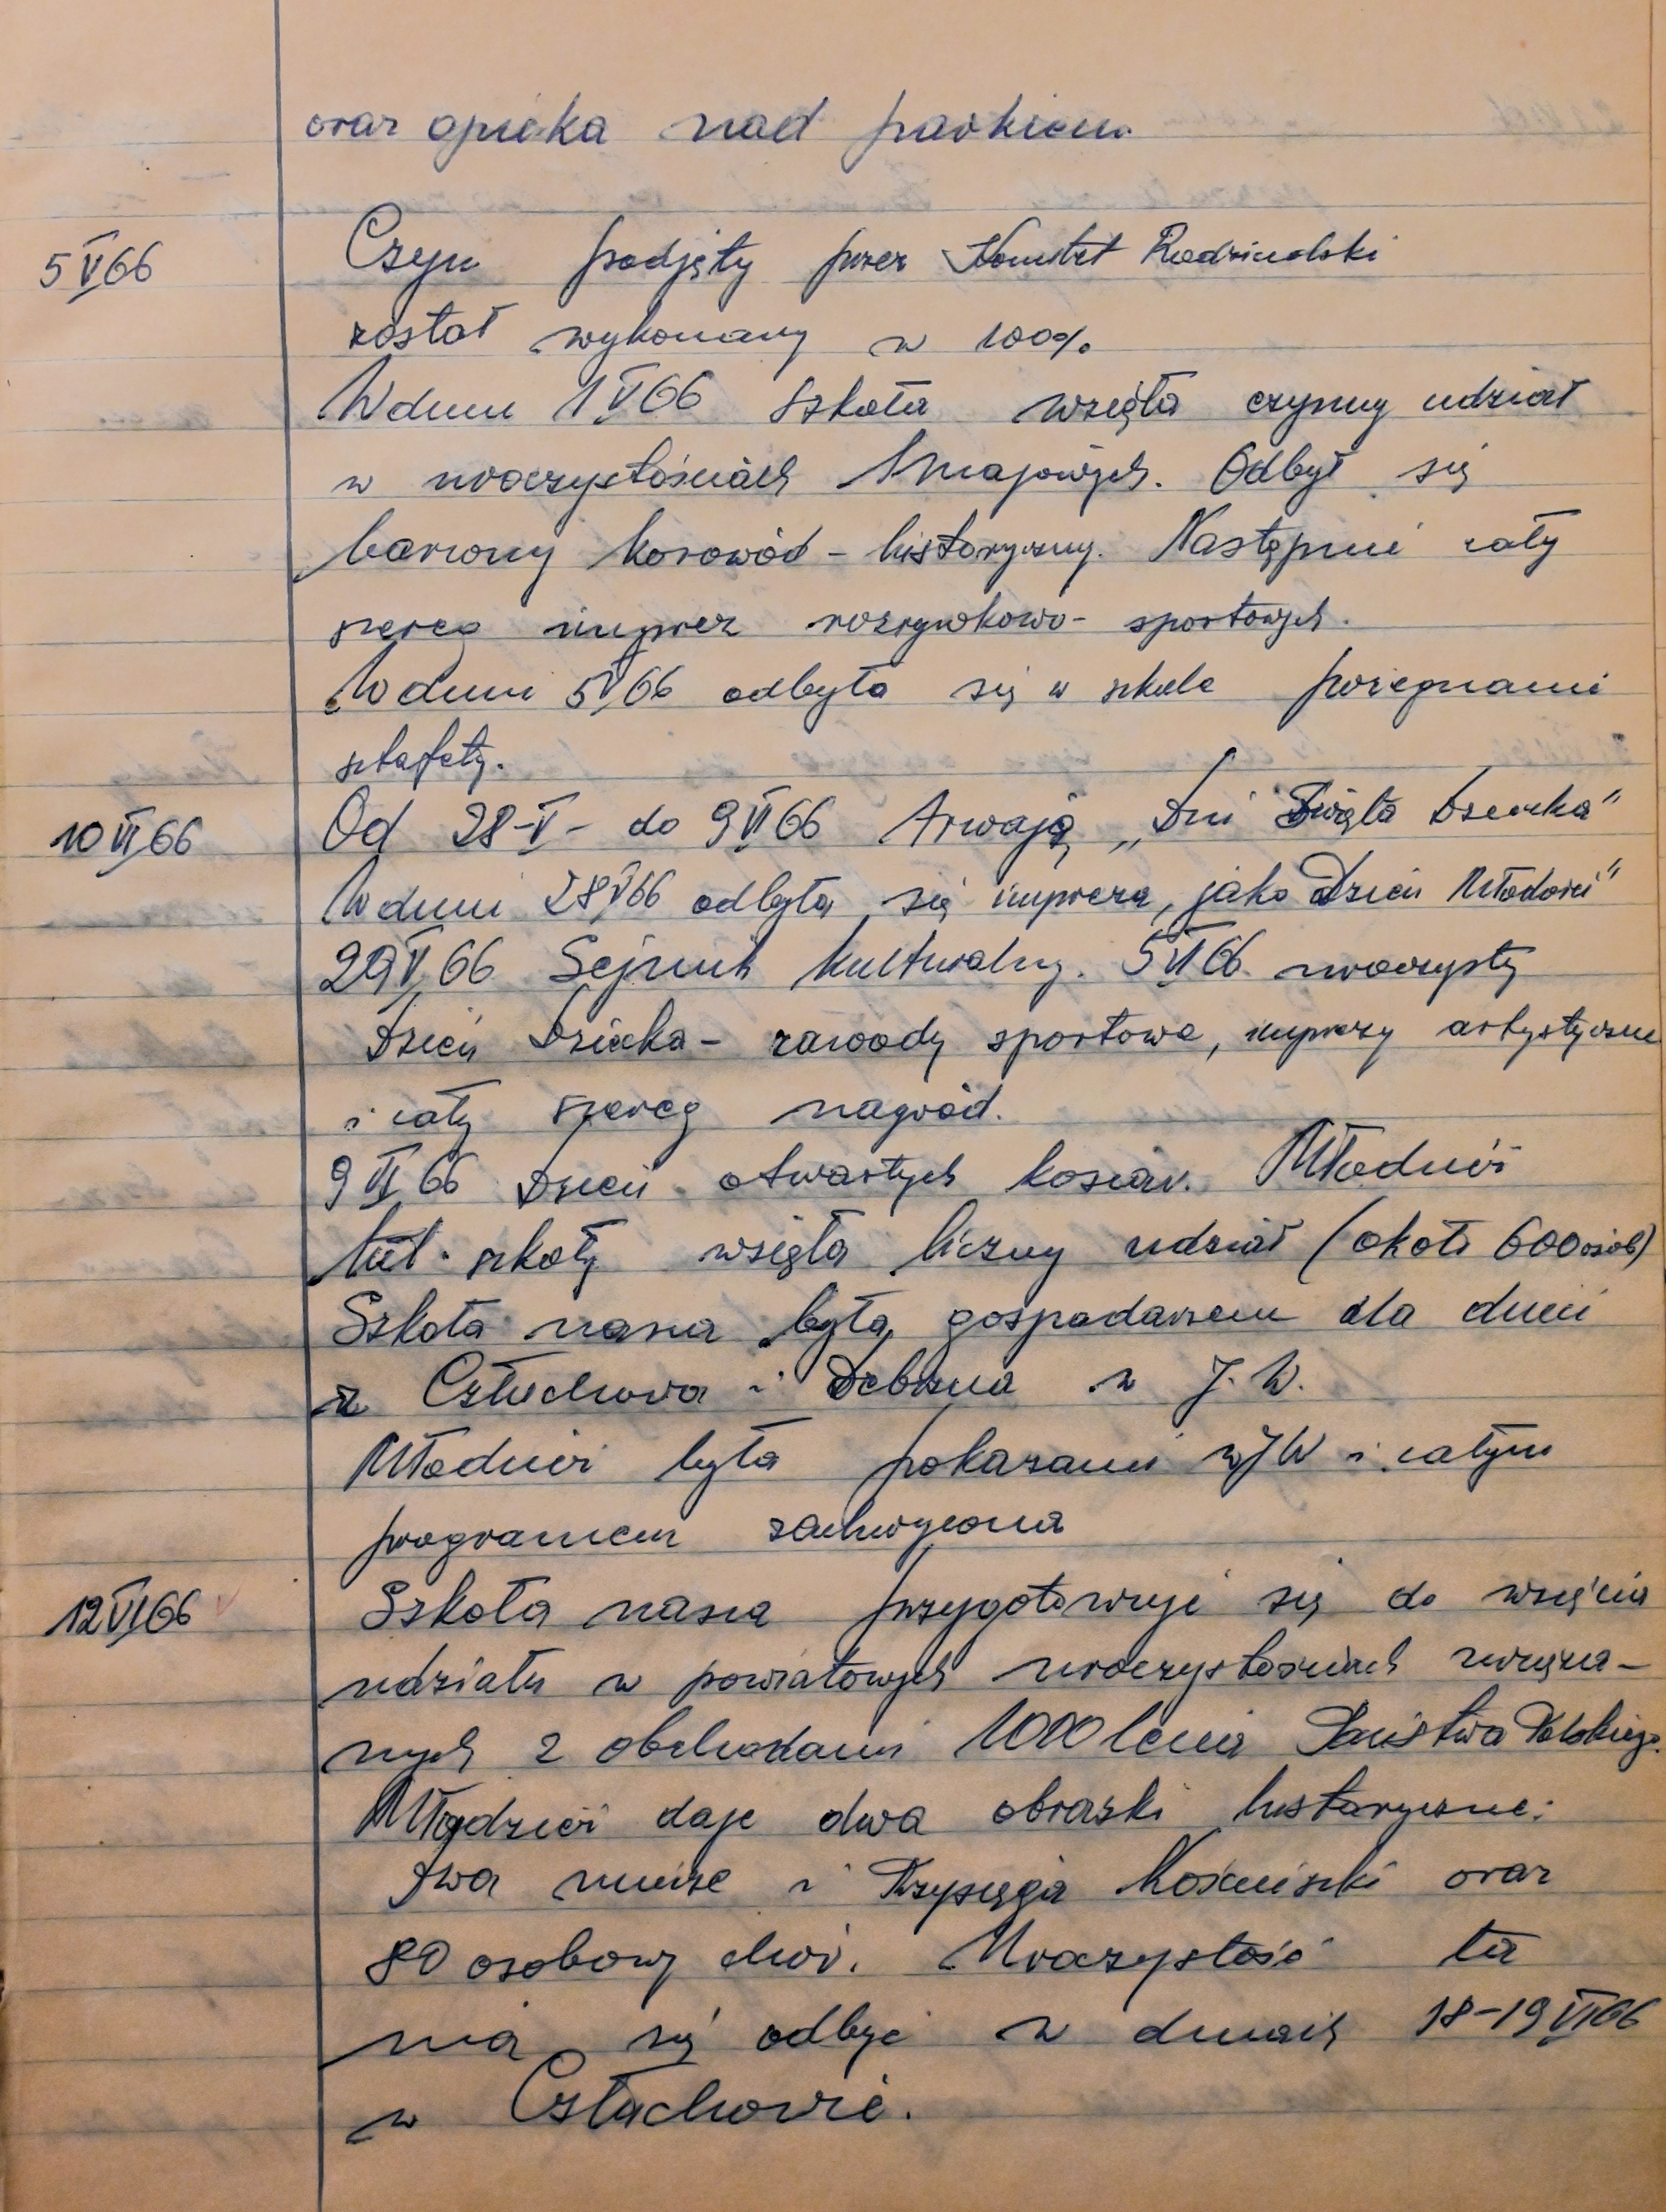 oraz opieka nad parkiem.
5 V 66 Czyn podjęty przez Komitet Rodzicielski
został wykonany w 100%
W dniu 1 V 66 Szkoła wzięła czynny udział
w uroczystościach 1 majowych. Odbył się
barwny korowód - historyczny. Następnie cały
szereg imprez rozrywkowo - sportowych.
W dniu 5 V 66 odbyła się w szkole pożegnanie
sztafety.
10 VI 66 Od 28 - V - do 9 VI 66 trwają „Dni Święta Dziecka"
W dniu 28 V 66 odbyła się impreza, jako Dzień Młodości"
29 V 66 Sejmik kulturalny. 5 VI 66 uroczysty
Dzień Dziecka - zawody sportowe, imprezy artystyczne
i cały szereg nagród.
9 VI 66 Dzień otwartych koszar. Młodzież
tut. szkoły wzięła liczny udział (około 600 osób)
Szkoła nasza była gospodarzem dla dzieci
z Człuchowa i Debrzna w J. W.
Młodzież była pokazami w JW i całym
programem zachwycona
12 VI 66 Szkoła nasza przygotowuje się do wzięcia
udziału w powiatowych uroczystościach związa-
nych z obchodami 1000 lecia Państwa Polskiego.
Młodzież daje dwa obrazki historyczne:
Dwa miecze i Przysięga Kościuszki oraz
80 osobowy chór. Uroczystość ta
ma się odbyć w dniach 18-19 VI 66
w Człuchowie.